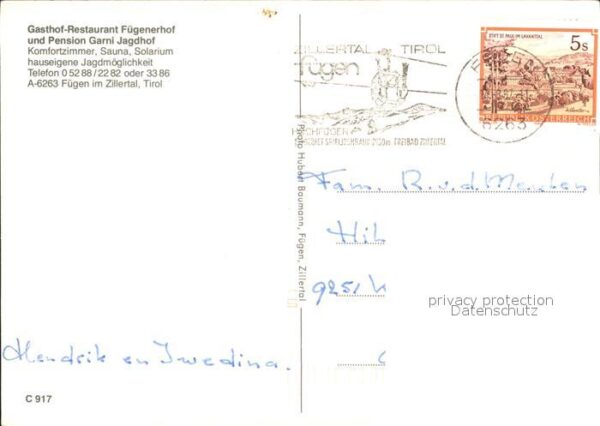 Gasthof-Restaurant Fügenerhof
und Pension Garni Jagdhof
Komfortzimmer, Sauna, Solarium
hauseigene Jagdmöglichkeit
Telefon 0 52 88 / 22 82 oder 33 86
A-6263 Fügen im Zillertal, Tirol
ZILLERTAL TIROL
fügen
HOCHFÜGEN
FREIBAD ZILLERTAL
6263
STIFT ST. PAUL IM LAVANTTAL
5s
REPUBLIK ÖSTERREICH
Photo Hubert Baumann, Fügen, Zillertal
Fam. R.v.d.
Hil
9251
privacy protection
Datenschutz
Hendrik en Swedina.
C 917